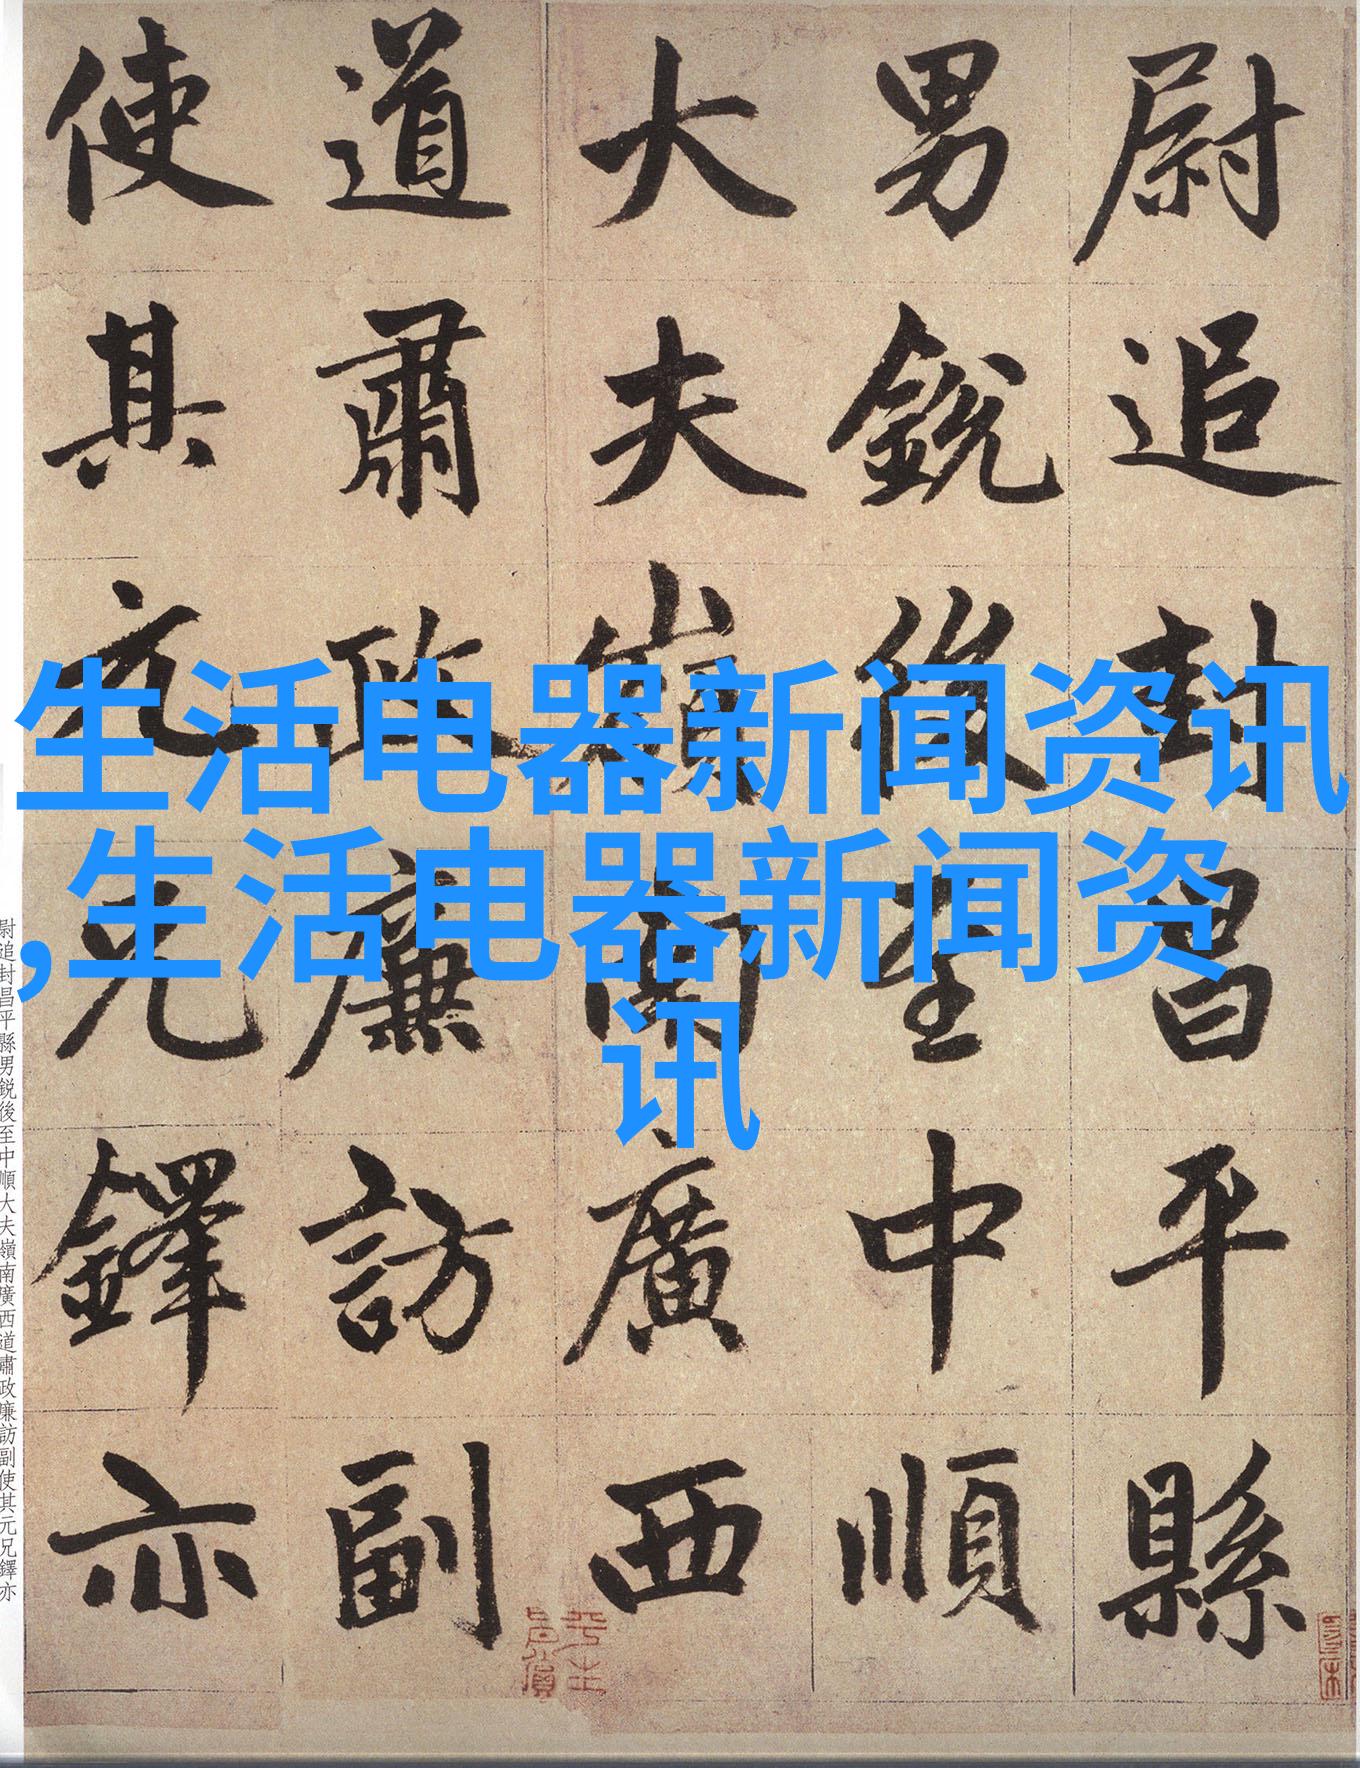 尉追封昌平縣
男銳後至中順
大夫嶺南廣西
道肅政廉訪副
使其元兄鐸亦
生活电器新闻资讯
,生活电器新闻资
讯
尉追封昌平縣男銳後至中順大夫嶺南廣西道肅政廉訪副使其元兄鐸亦